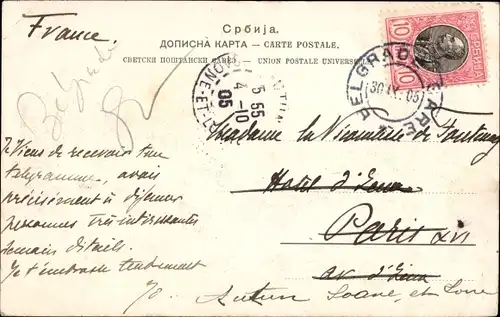 France.
Србија.
ДОПИСНА КАРТА — CARTE POSTALE.
СВЕТСКИ ПОШТАНСКИ САВЕЗ — UNION POSTALE UNIVERSELLE
10 СРБИЈА 10
BELGRADE GARE
30 IX. 05
Belgrade
SAONE-ET-LOIRE
5 55
4-10
05
AUTUN
Madame la Vicomtesse de Fontenay
Hotel d'Iena
Paris XVI
av d'Iena
Autun Saone et Loire
Je Viens de recevoir ton
telegramme, avais
précisément à déjeuner
personnes très intéressantes
demain details.
Je t'embrasse tendrement